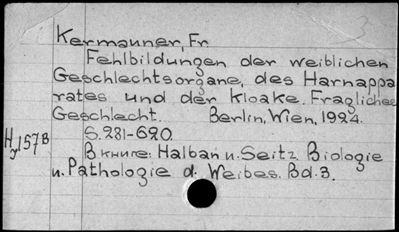 Kermauner, Fr.
Fehlbildungen der weiblichen
Geschlechtsorgane, des Harnappa
rates und der Kloake. Fragliches
Geschlecht. Berlin, Wien, 1924.
S. 281-620.
В книге: Halban u. Seitz Biologie
u. Pathologie d. Weibes. Bd. 3.
157В